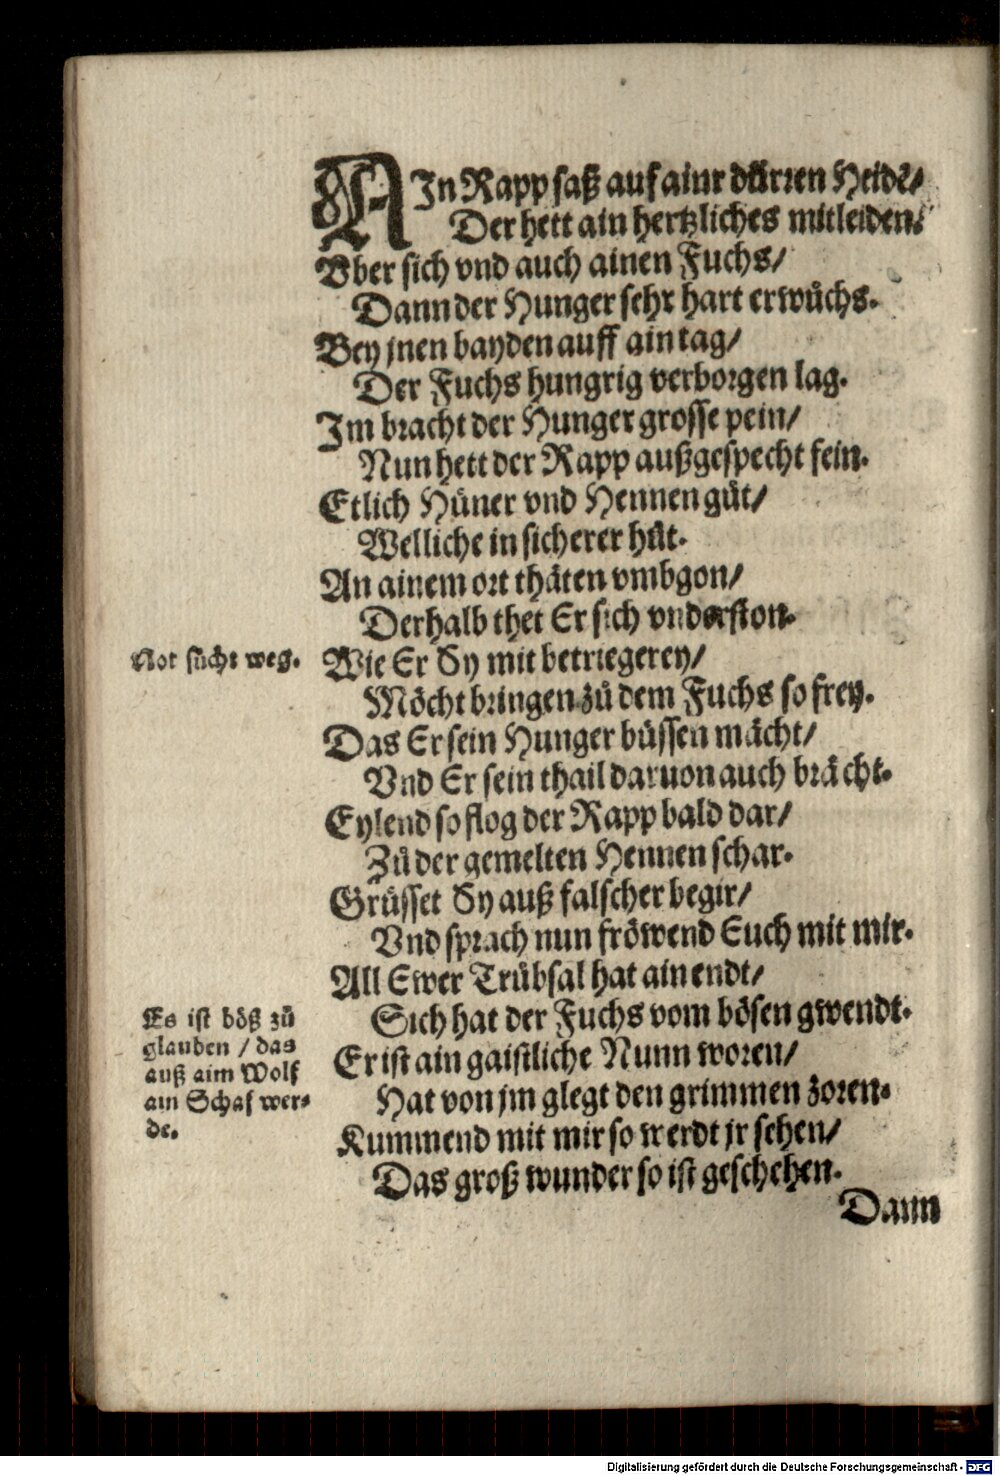 AIn Rapp saß auf ainr dürren Heidẽ/
Der hett ain hertzliches mitleiden.
Vber sich vnd auch ainen Fuchs/
Dann der Hunger sehr hart erwůchs.
Bey jnen bayden auff ain tag/
Der Fuchs hungrig verborgen lag.
Im bracht der Hunger grosse pein/
Nun hett der Rapp außgespecht fein.
Etlich Hüner vnd Hennen gůt/
Welliche in sicherer hůt.
An ainem ort thäten vmbgon/
Derhalb thet Er sich vnderston.
Not sůcht weg.
Wie Er Sy mit betriegerey/
Möcht bringen zů dem Fuchs so frey.
Das Er sein Hunger büssen mächt/
Vnd Er sein thail daruon auch brächt.
Eylend so flog der Rapp bald dar/
Zů der gemelten Hennen schar.
Grüsset Sy auß falscher begir/
Vnd sprach nun fröwend Euch mit mir.
All Ewer Trübsal hat ain endt/
Es ist böß zů
glauben / das
auß aim Wolf
ain Schaf wer-
de.
Sich hat der Fuchs vom bösen gwendt.
Er ist ain gaistliche Nunn woren/
Hat von jm glegt den grimmen zoren.
Kummend mit mir so werdt jr sehen/
Das groß wunder so ist geschehen.
Dann
Digitalisierung gefördert durch die Deutsche Forschungsgemeinschaft - DFG